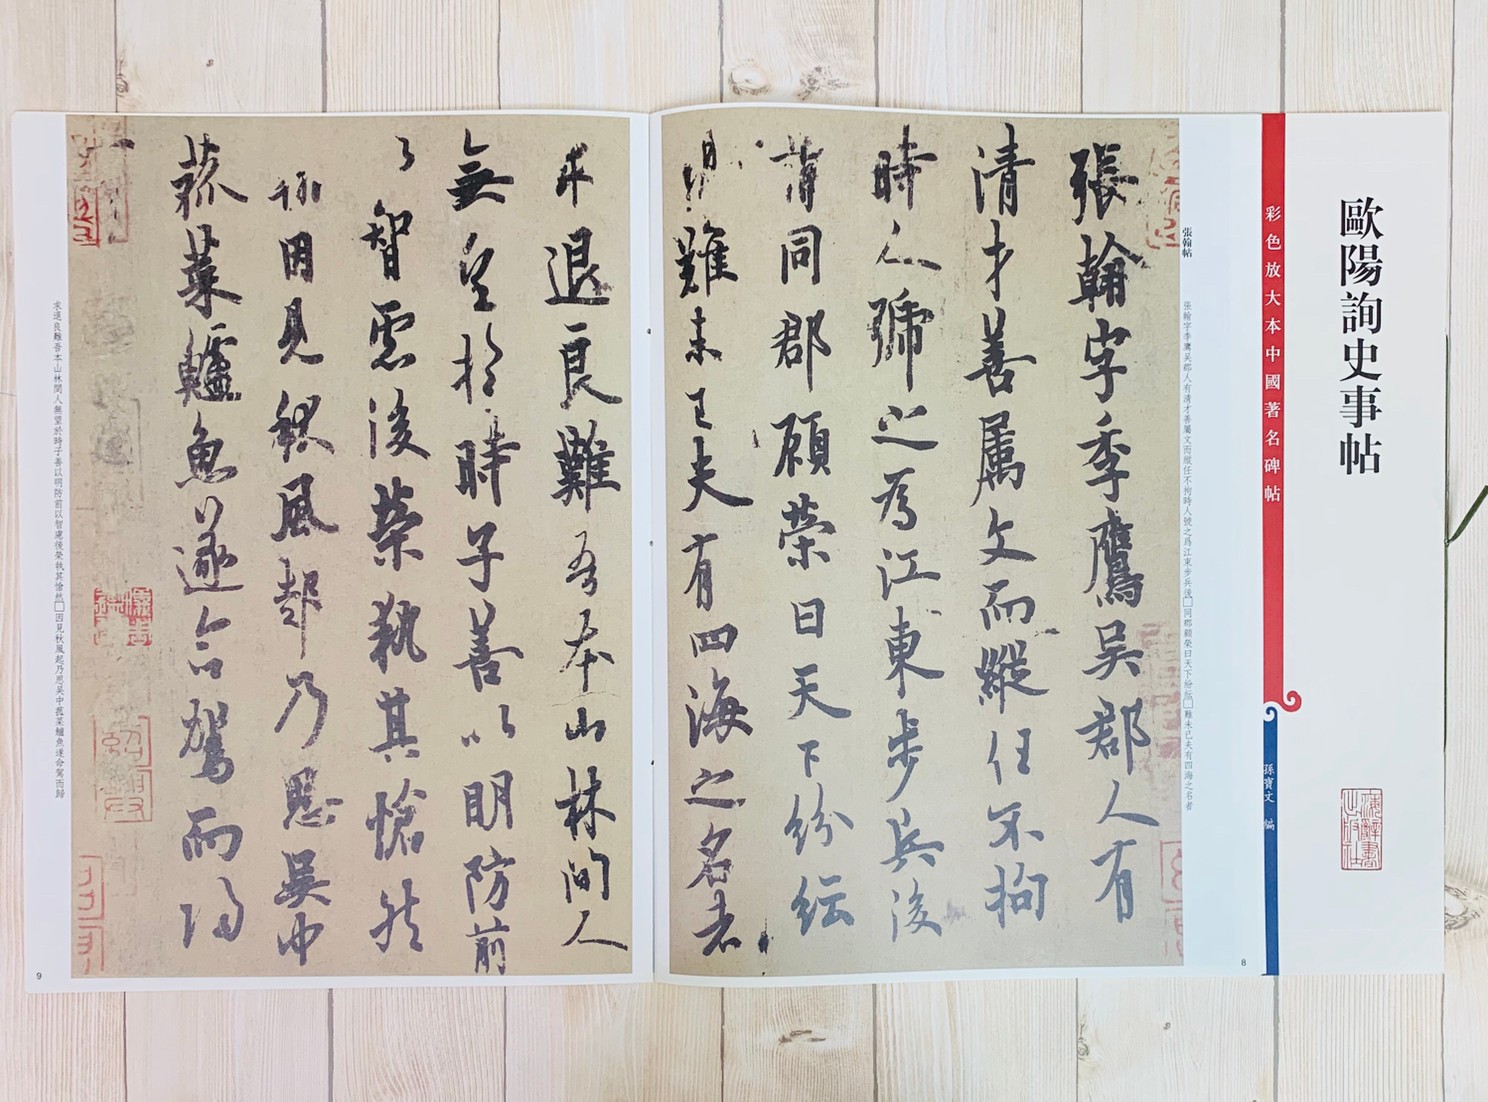 歐陽詢史事帖
彩色放大本中國著名碑帖
孫寶文 編
上海辭書出版社
張翰帖
張翰字季鷹吳郡人有清才善屬文而縱任不拘時人號之爲江東步兵後□同郡顧榮曰天下紛紜□難未已夫有四海之名者
張翰字季鷹吳郡人有
清才善属文而縱任不拘
時人號之為江東步兵後
同郡顧榮曰天下紛紜
難未已夫有四海之名者
8
求退良難吾本山林間人
無望於時子善以明防前
以智慮後榮執其愴然
因見秋風起乃思吳中
菰菜鱸魚遂命駕而歸
求退良難吾本山林間人無望於時子善以明防前以智慮後榮執其愴然□因見秋風起乃思吳中菰菜鱸魚遂命駕而歸
9